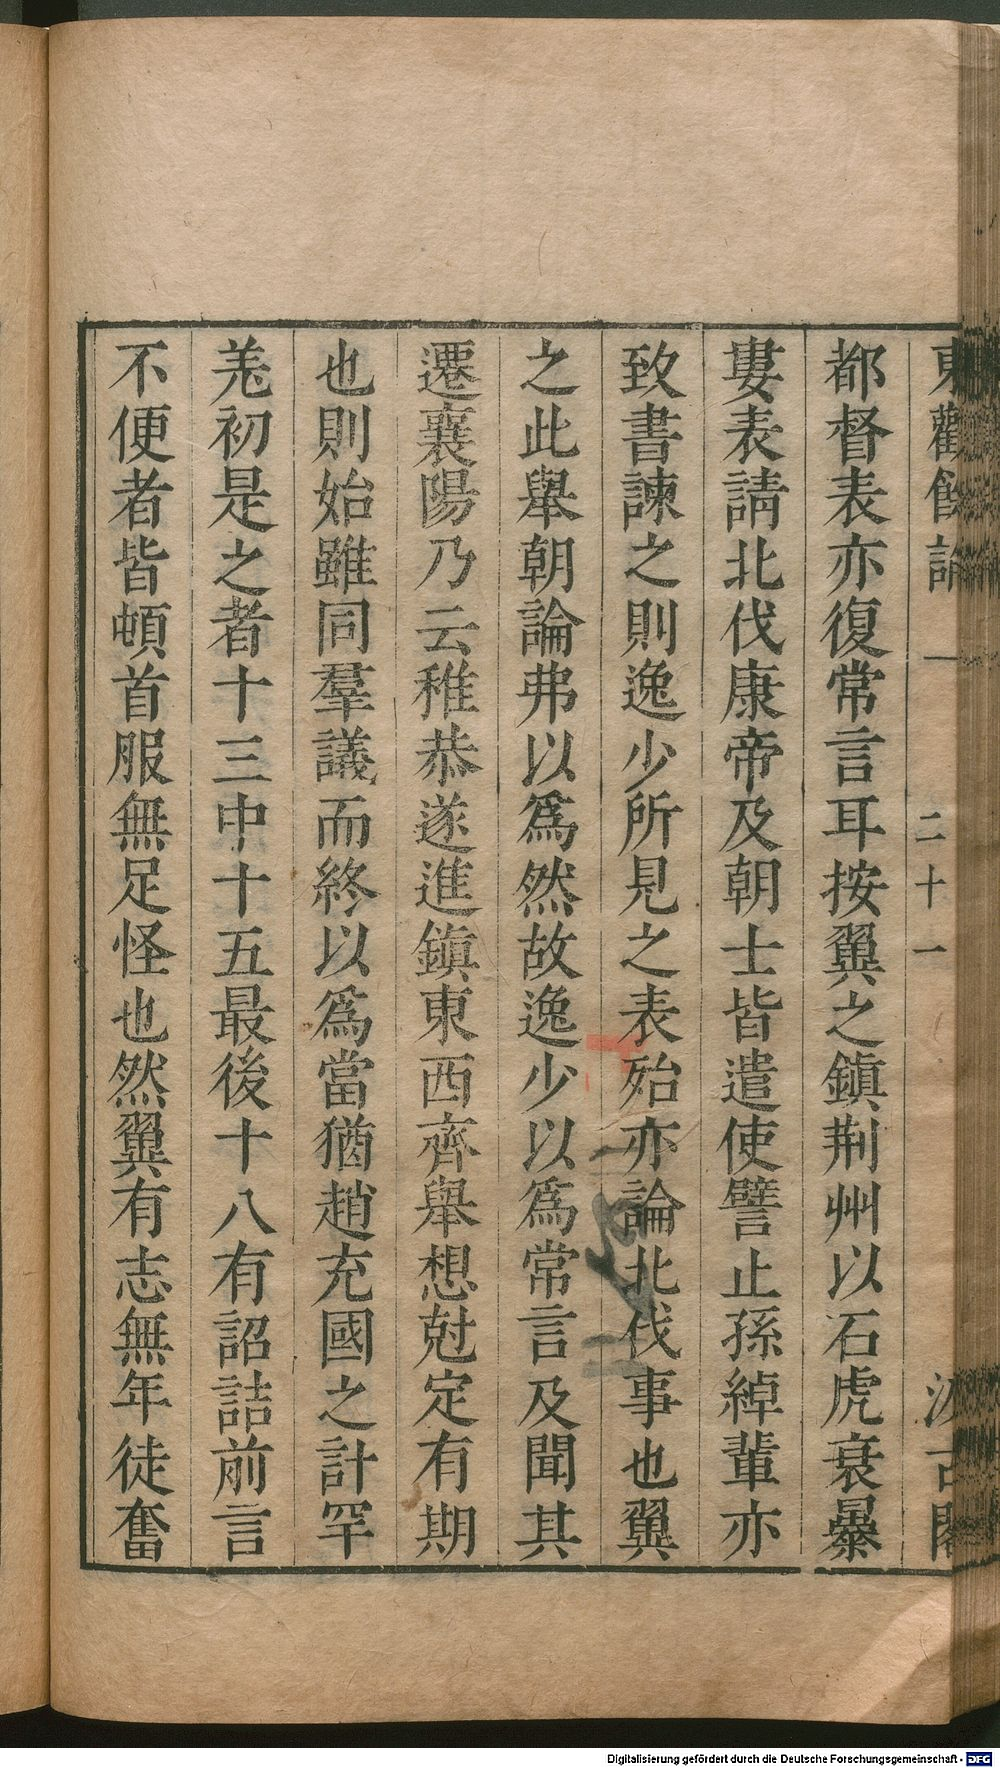 東觀餘論 一 二十一 汲古閣
都督表亦復常言耳按翼之鎮荆州以石虎衰㬥
婁表請北伐康帝及朝士皆遣使譬止孫綽輩亦
致書諫之則逸少所見之表殆亦論北伐事也翼
之此舉朝論弗以爲然故逸少以爲常言及聞其
遷襄陽乃云稚恭遂進鎮東西齊舉想尅定有期
也則始雖同羣議而終以爲當猶趙充國之計罕
羗初是之者十三中十五最後十八有詔詰前言
不便者皆頓首服無足怪也然翼有志無年徒奮
Digitalisierung gefördert durch die Deutsche Forschungsgemeinschaft - DFG